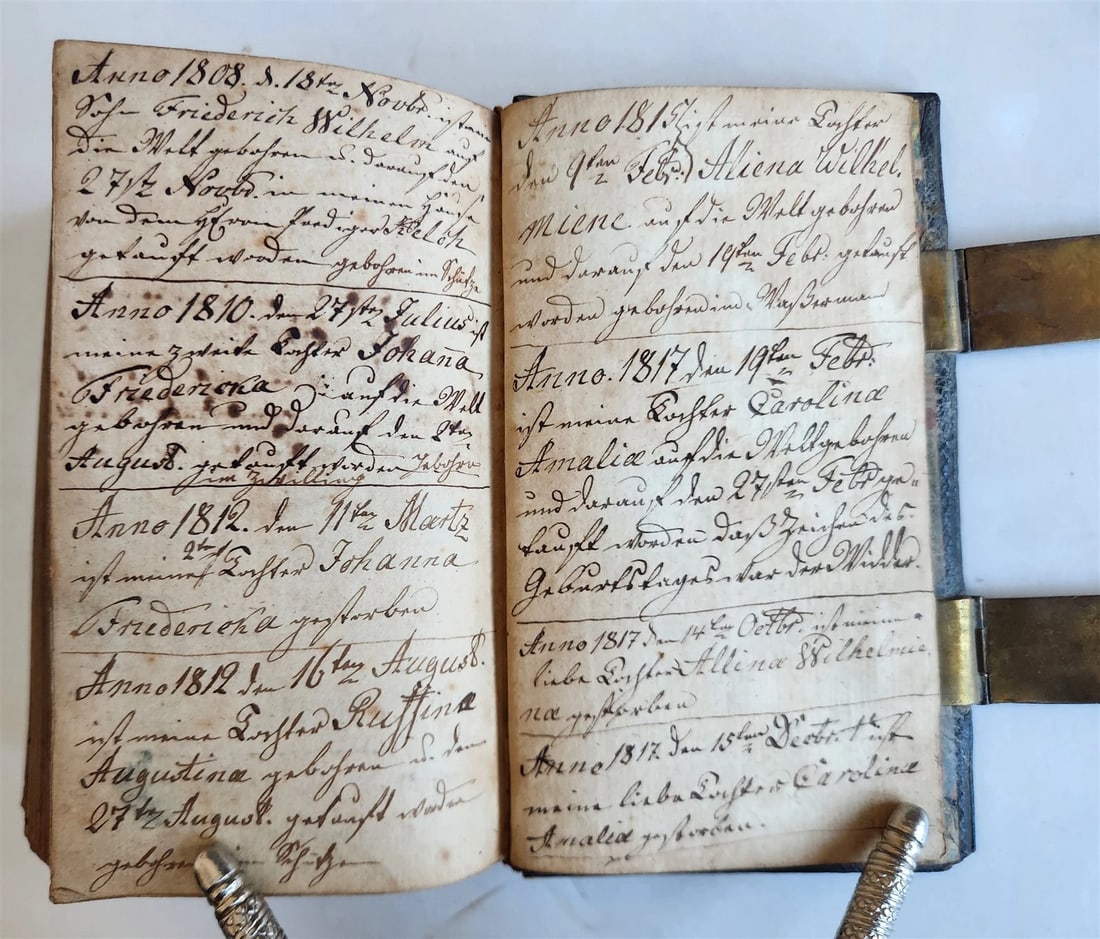 Anno 1808. d. 18ten Novbr. ist ein
Sohn Friederich Wilhelm auf
die Welt gebohren u. darauf den
27st Novbr. in meinen Hause
von dem Herrn Prediger Kelch
getauft worden gebohren im Schütze
Anno 1810. den 27sten Julius ist
meine zweite Tochter Johanna
Friedericka auf die Welt
gebohren und darauf den 2ten
August. getauft worden gebohren
im Zwilling
Anno 1812. den 11ten Martz
ist meine 2te Tochter Johanna
Friedericka gestorben
Anno 1812 den 16ten August.
ist meine Tochter Ruffina
Augustina gebohren u. den
27t August. getauft worden
gebohren im Schützen
Anno 1815 ist meine Tochter
den 9ten Febr. Aliena Wilhel,
miene auf die Welt gebohren
und darauf den 19ten Febr. getauft
worden gebohren im Waßerman
Anno. 1817 den 19ten Febr.
ist meine Tochter Carolina
Amalia auf die Welt gebohren
und darauf den 27sten Febr ge=
tauft worden daß Zeichen des
Geburtstages war der Widder.
Anno 1817 den 14ten Octbr. ist meine
liebe Tochter Allina Wilhelmie,
na gestorben
Anno 1817. den 15ten Decbr. ist
meine liebe Tochter Carolina
Amalia gestorben.